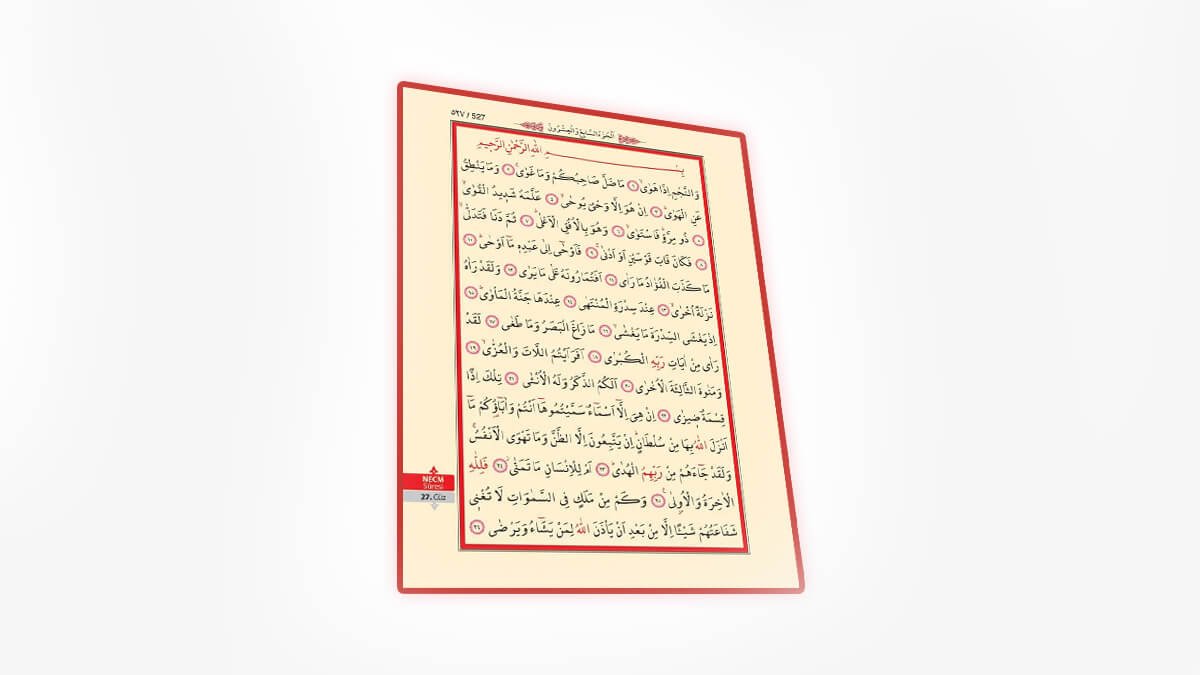 ٥٢٧ / 527
اَلْجُزْءُ السَّابِعُ وَالْعِشْرُونَ
بِسْــــــــمِ اللّٰهِ الرَّحْمٰنِ الرَّحِيمِ
وَالنَّجْمِ اِذَا هَوٰىۙ ﴿١﴾ مَا ضَلَّ صَاحِبُكُمْ وَمَا غَوٰىۚ ﴿٢﴾ وَمَا يَنْطِقُ
عَنِ الْهَوٰىۜ ﴿٣﴾ اِنْ هُوَ اِلَّا وَحْيٌ يُوحٰىۙ ﴿٤﴾ عَلَّمَهُ شَدِيدُ الْقُوٰىۙ
﴿٥﴾ ذُو مِرَّةٍۜ فَاسْتَوٰىۙ ﴿٦﴾ وَهُوَ بِالْاُفُقِ الْاَعْلٰىۜ ﴿٧﴾ ثُمَّ دَنَا فَتَدَلّٰىۙ
﴿٨﴾ فَكَانَ قَابَ قَوْسَيْنِ اَوْ اَدْنٰىۚ ﴿٩﴾ فَاَوْحٰٓى اِلٰى عَبْدِهِ مَٓا اَوْحٰىۜ ﴿١٠﴾
مَا كَذَبَ الْفُؤٰادُ مَا رَاٰى ﴿١١﴾ اَفَتُمَارُونَهُ عَلٰى مَا يَرٰى ﴿١٢﴾ وَلَقَدْ رَاٰهُ
نَزْلَةً اُخْرٰىۙ ﴿١٣﴾ عِنْدَ سِدْرَةِ الْمُنْتَهٰى ﴿١٤﴾ عِنْدَهَا جَنَّةُ الْمَأْوٰىۜ ﴿١٥﴾
اِذْ يَغْشَى السِّدْرَةَ مَا يَغْشٰىۙ ﴿١٦﴾ مَا زَاغَ الْبَصَرُ وَمَا طَغٰى ﴿١٧﴾ لَقَدْ
رَاٰى مِنْ اٰيَاتِ رَبِّهِ الْكُبْرٰى ﴿١٨﴾ اَفَرَاَيْتُمُ اللَّاتَ وَالْعُزّٰىۙ ﴿١٩﴾
وَمَنٰوةَ الثَّالِثَةَ الْاُخْرٰى ﴿٢٠﴾ اَلَكُمُ الذَّكَرُ وَلَهُ الْاُنْثٰى ﴿٢١﴾ تِلْكَ اِذًا
قِسْمَةٌ ضِيزٰى ﴿٢٢﴾ اِنْ هِيَ اِلَّٓا اَسْمَٓاءٌ سَمَّيْتُمُوهَٓا اَنْتُمْ وَاٰبَٓاؤُ۬كُمْ مَٓا
اَنْزَلَ اللّٰهُ بِهَا مِنْ سُلْطَانٍۜ اِنْ يَتَّبِعُونَ اِلَّا الظَّنَّ وَمَا تَهْوَى الْاَنْفُسُۚ
وَلَقَدْ جَٓاءَهُمْ مِنْ رَبِّهِمُ الْهُدٰىۜ ﴿٢٣﴾ اَمْ لِلْاِنْسَانِ مَا تَمَنّٰىۘ ﴿٢٤﴾ فَلِلّٰهِ
الْاٰخِرَةُ وَالْاُو۫لٰى۟ ﴿٢٥﴾ وَكَمْ مِنْ مَلَكٍ فِي السَّمٰوَاتِ لَا تُغْنِي
شَفَاعَتُهُمْ شَيْـًٔا اِلَّا مِنْ بَعْدِ اَنْ يَأْذَنَ اللّٰهُ لِمَنْ يَشَٓاءُ وَيَرْضٰى ﴿٢٦﴾
NECM
Sûresi
27. Cüz